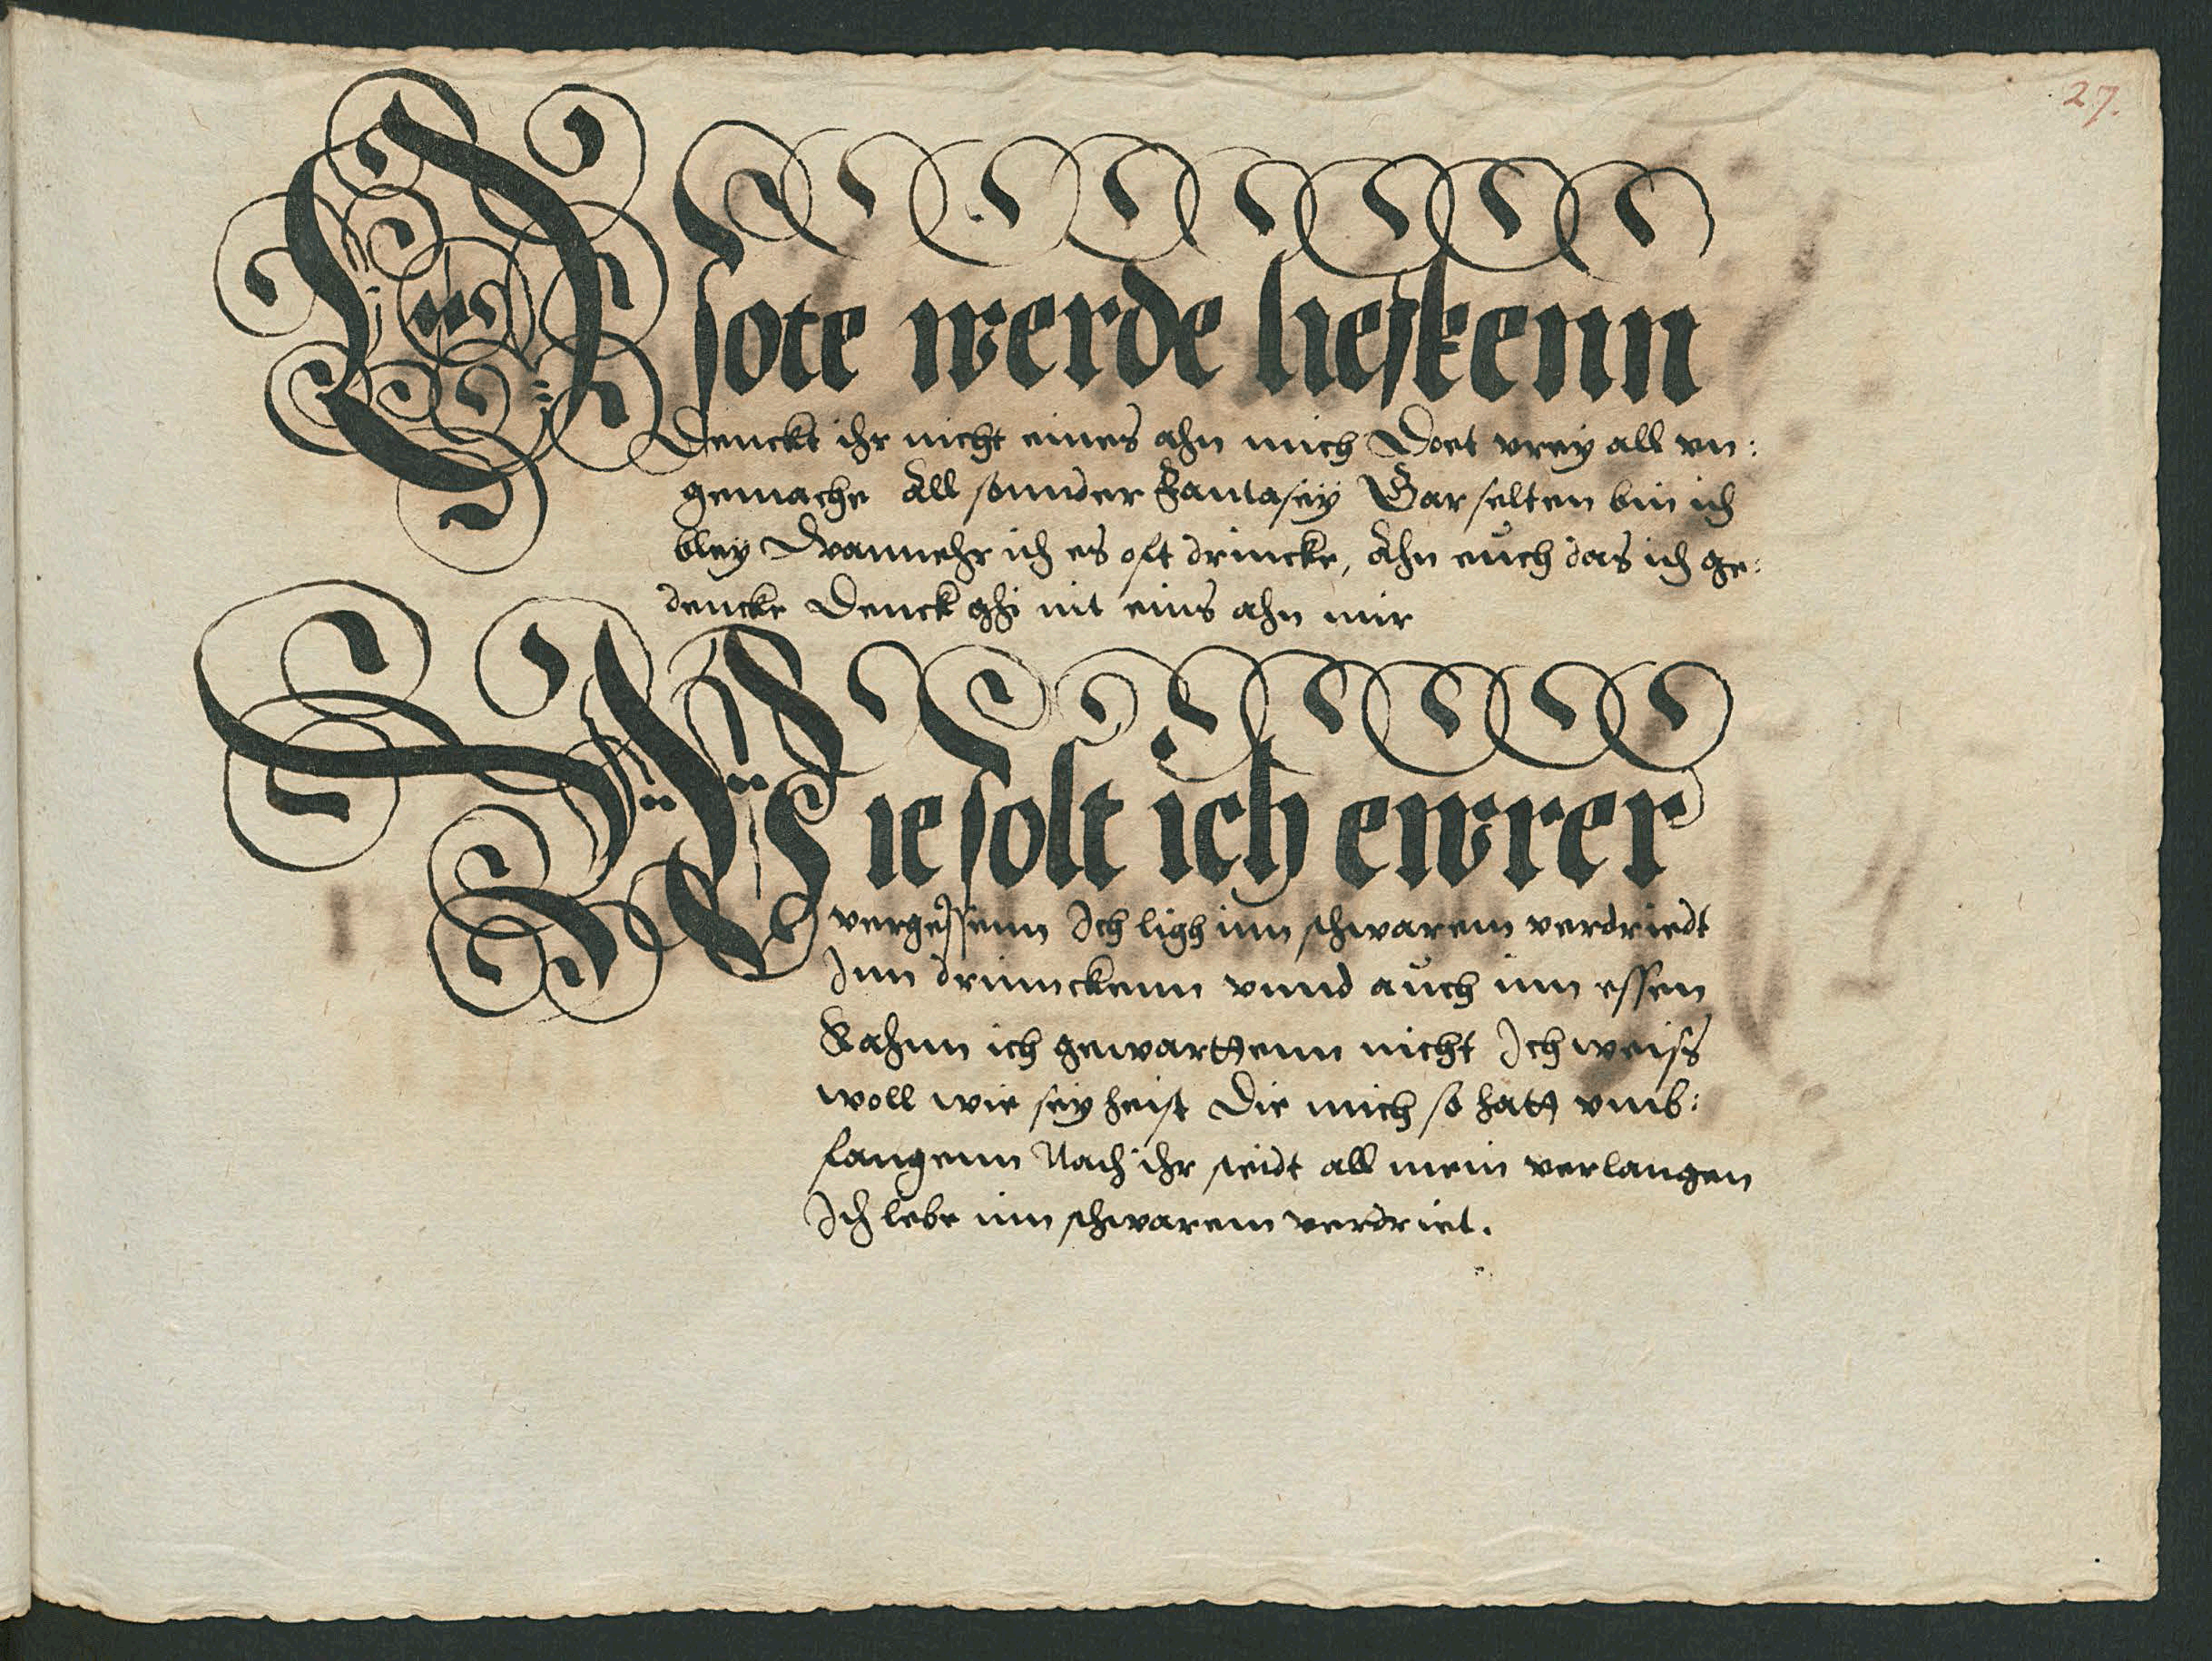 27.
O sote werde lieskenn
Denckt ihr nicht eines ahn mich Doet vrey all vn:
gemache All sonnder Fantasey Gar selten bin ich
bley Wannehr ich es oft drincke, Ahn euch das ich ge:
dencke Denck ghi nit eins ahn mir
Wie solt ich ewrer
vergessenn Ich ligh inn schwarem verdriedt
Inn drinnckenn vnnd auch inn essen
Kahnn ich gewarttenn nicht Ich weiss
woll wie sey heist Die mich so hatt vmb:
fangenn Nach ihr steidt all mein verlangen
Ich lebe inn schwarem verdriet.